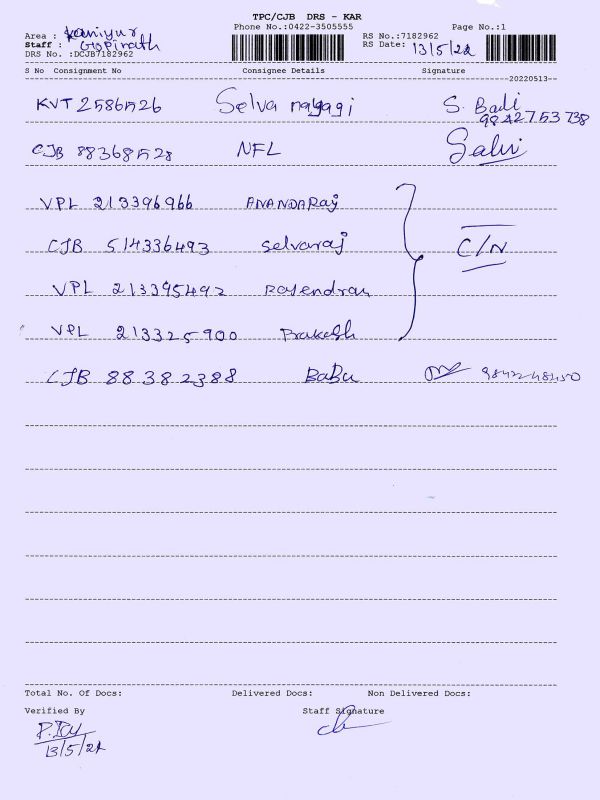 TPC/CJB DRS - KAR
Phone No.:0422-3505555 Page No.:1
Area : Kaniyur
Staff : Gopinath
DRS No. :DCJB7182962
RS No.:7182962
RS Date: 13/5/22
S No Consignment No Consignee Details Signature
20220513
KVT 2586526 Selva S. Badi
9842753738
CJB 88368528 NFL
VPL 213396966 ANANDARaj
CJB 514336493 Selvaraj C/N
VPL 213395492 Rajendran
VPL 213325900 Prakash
CJB 88382388 BaBu
Total No. Of Docs: Delivered Docs: Non Delivered Docs:
Verified By Staff Signature
13/5/22